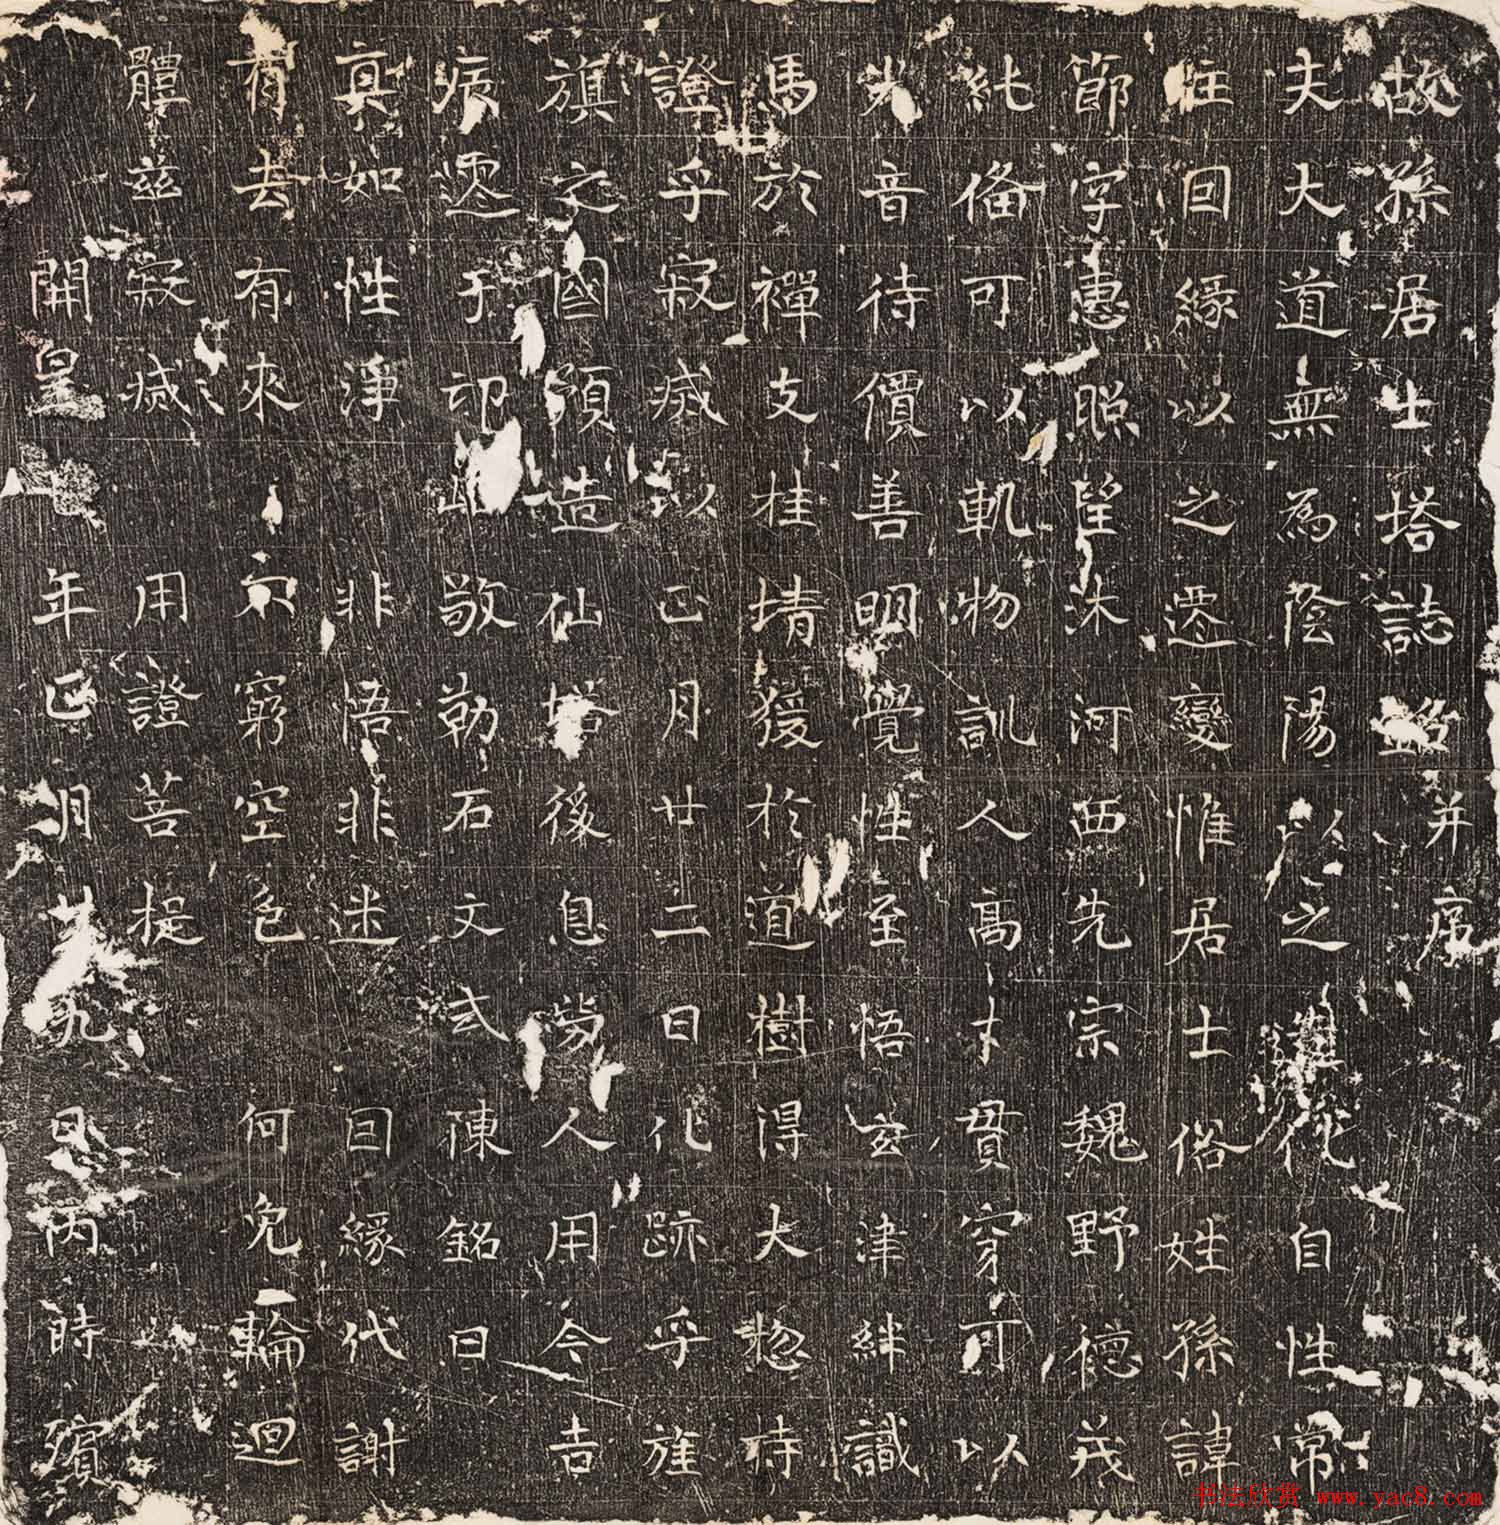 故孫居士塔誌銘并序
夫大道無為陰陽以之遷代自性常
住因緣以之遷變惟居士俗姓孫諱
節字惠照望汰河西先宗魏野德茂
純俻可以軌物訓人高才貫穿可以
光音待價善明覺性至悟玄津絆識
馬於禪支桂情猨於道樹得大惣持
證乎寂滅以正月廿二日化跡乎旌
旗之國預造仙塔後息勞人用今吉
辰遷于邙山敬勒石文式陳銘曰
真如性淨非悟非迷因緣代謝
有去有來六窮空色何免輪迴
體茲寂滅用證菩提
開皇年正月廿九日丙時殯
书法欣赏 www.yac8.com